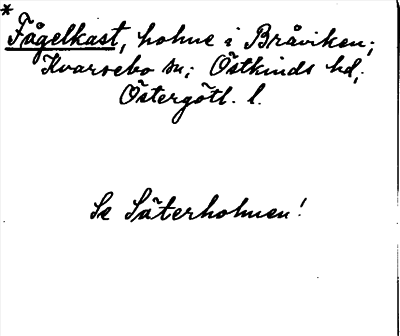 * Fågelkast, holme i Bråviken;
Kvarsebo sn; Östkinds hd,
Östergötl. l.
Se Säterholmen!